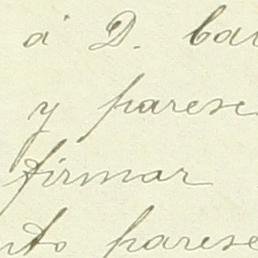 á D.
y parese
firmar
parese